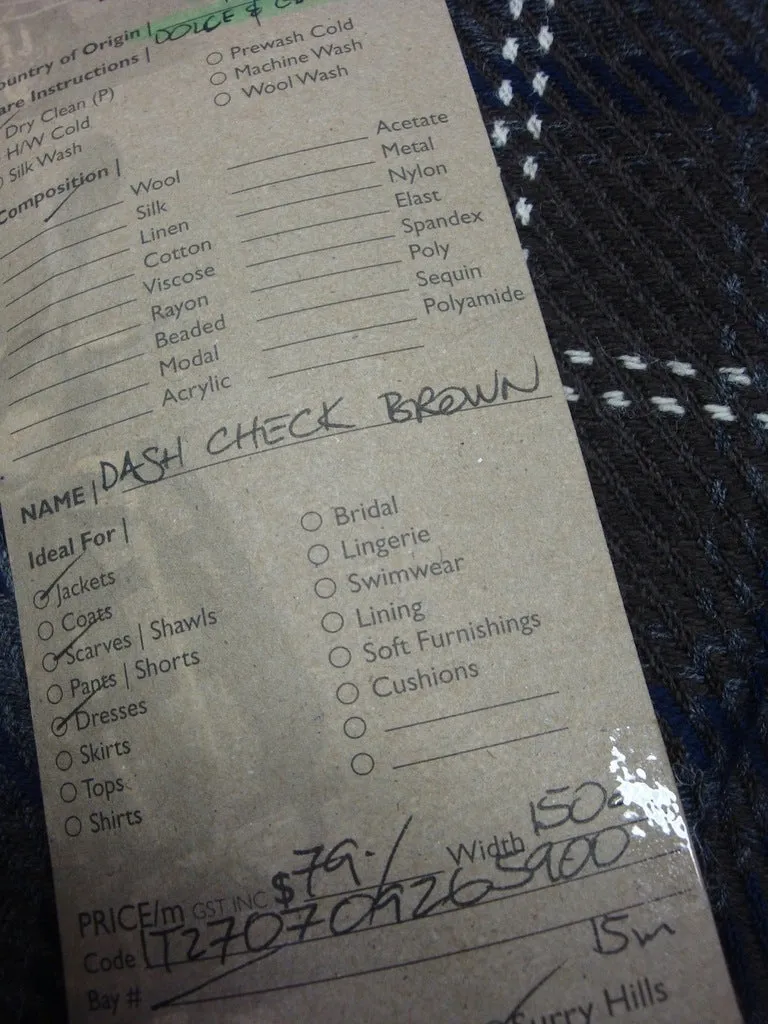 Country of Origin | DOLCE &
Care Instructions |
Dry Clean (P)
H/W Cold
Silk Wash
Prewash Cold
Machine Wash
Wool Wash
Composition |
Wool
Silk
Linen
Cotton
Viscose
Rayon
Beaded
Modal
Acrylic
Acetate
Metal
Nylon
Elast
Spandex
Poly
Sequin
Polyamide
NAME | DASH CHECK BROWN
Ideal For |
Jackets
Coats
Scarves | Shawls
Pants | Shorts
Dresses
Skirts
Tops
Shirts
Bridal
Lingerie
Swimwear
Lining
Soft Furnishings
Cushions
PRICE/m GST INC $79./ Width 150
Code IT270709265900
Bay # 15m
Surry Hills